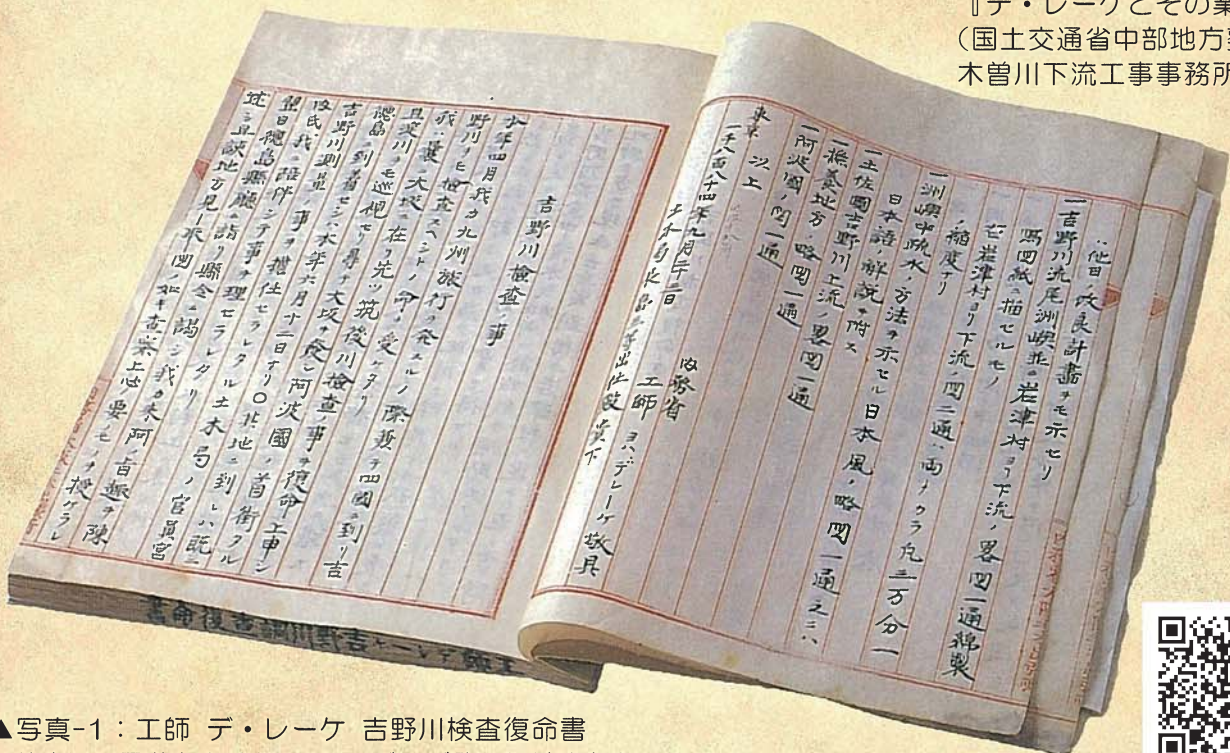 『デ・レーケとその業
(国土交通省中部地方整
木曽川下流工事事務所
、他日ノ改良計畫ヲモ示セリ
一吉野川流尾洲嶼並ニ岩津村ヨリ下流ノ畧図一通綿製
寫図紙ニ描セルモノ
仝岩津村ヨリ下流ノ図二通、両ナカラ凡三万分一
ノ縮度ナリ
一洲嶼中疏水ノ方法ヲ示セル日本風ノ略図一通之ニハ
日本語ノ解説ヲ附ス
一土佐國吉野川上流ノ畧図一通
一撫養地方ノ略図一通
一阿波國ノ図一通
以上
東京
一千八百八十四年九月二十三日
内務省
工師 ヨハデレーケ敬具
等出仕殿 貴下
吉野川檢査ノ事
年四月我カ九州旅行ノ発スルノ際 テ四國ニ到リ吉
野川ヲモ檢査スヘシトノ命ヲ受ケタリ
我曩ニ大坂ニ在リ先ツ筑後川檢査ノ事ヲ復命上申シ
且淀川ヲモ巡視セリ尋テ大坂ヲ発シ阿波國ノ首街タル
徳島ニ到着セシハ本年六月十二日ナリ〇此地ニ到レハ既ニ
吉野川測量ノ事ヲ擔任セラレタル土木局ノ官員宮
氏我ニ陪伴シテ事ヲ理セラレタリ
翌日徳島縣廳ニ詣リ縣令ニ謁シ我カ来阿ノ旨趣ヲ陳
述シ且該地方見取図ノ如キ査察上必要ノモノヲ授ケラレ
▲写真-1:工師 デ・レーケ 吉野川検査復命書